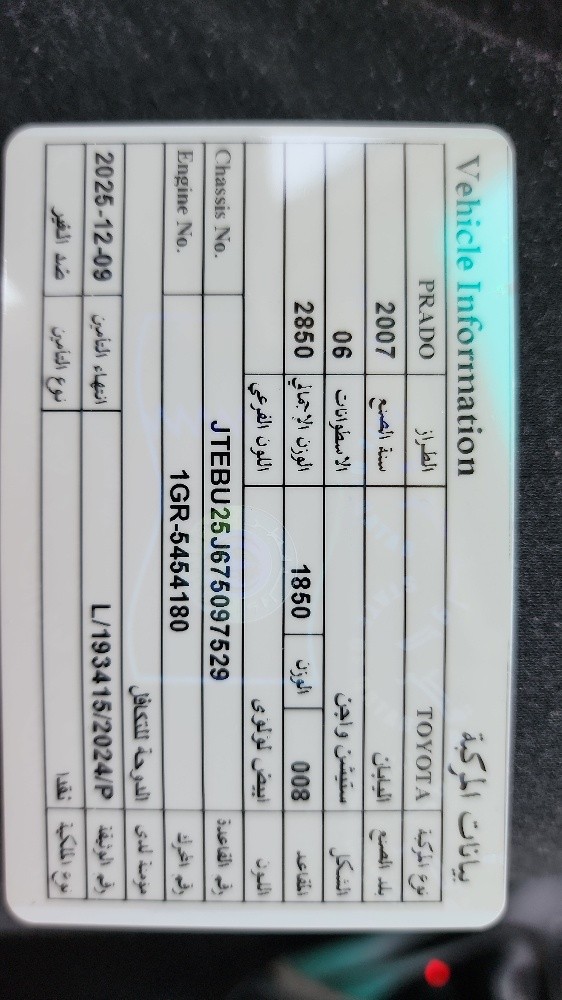 بيانات المركبة Vehicle Information
نوع المركبة TOYOTA الطراز PRADO
بلد الصنع اليابان سنة الصنع 2007
الشكل ستيشن واجن الاسطوانات 06
المقاعد 008 الوزن 1850 الوزن الإجمالي 2850
اللون ابيض لولوى اللون الفرعي
رقم القاعدة JTEBU25J675097529 Chassis No.
رقم المحرك 1GR-5454180 Engine No.
مؤمنة لدى الدوحة للتكافل
رقم الوثيقة L/193415/2024/P انتهاء التامين 2025-12-09
نوع الملكية نقدا نوع التامين ضد الغير